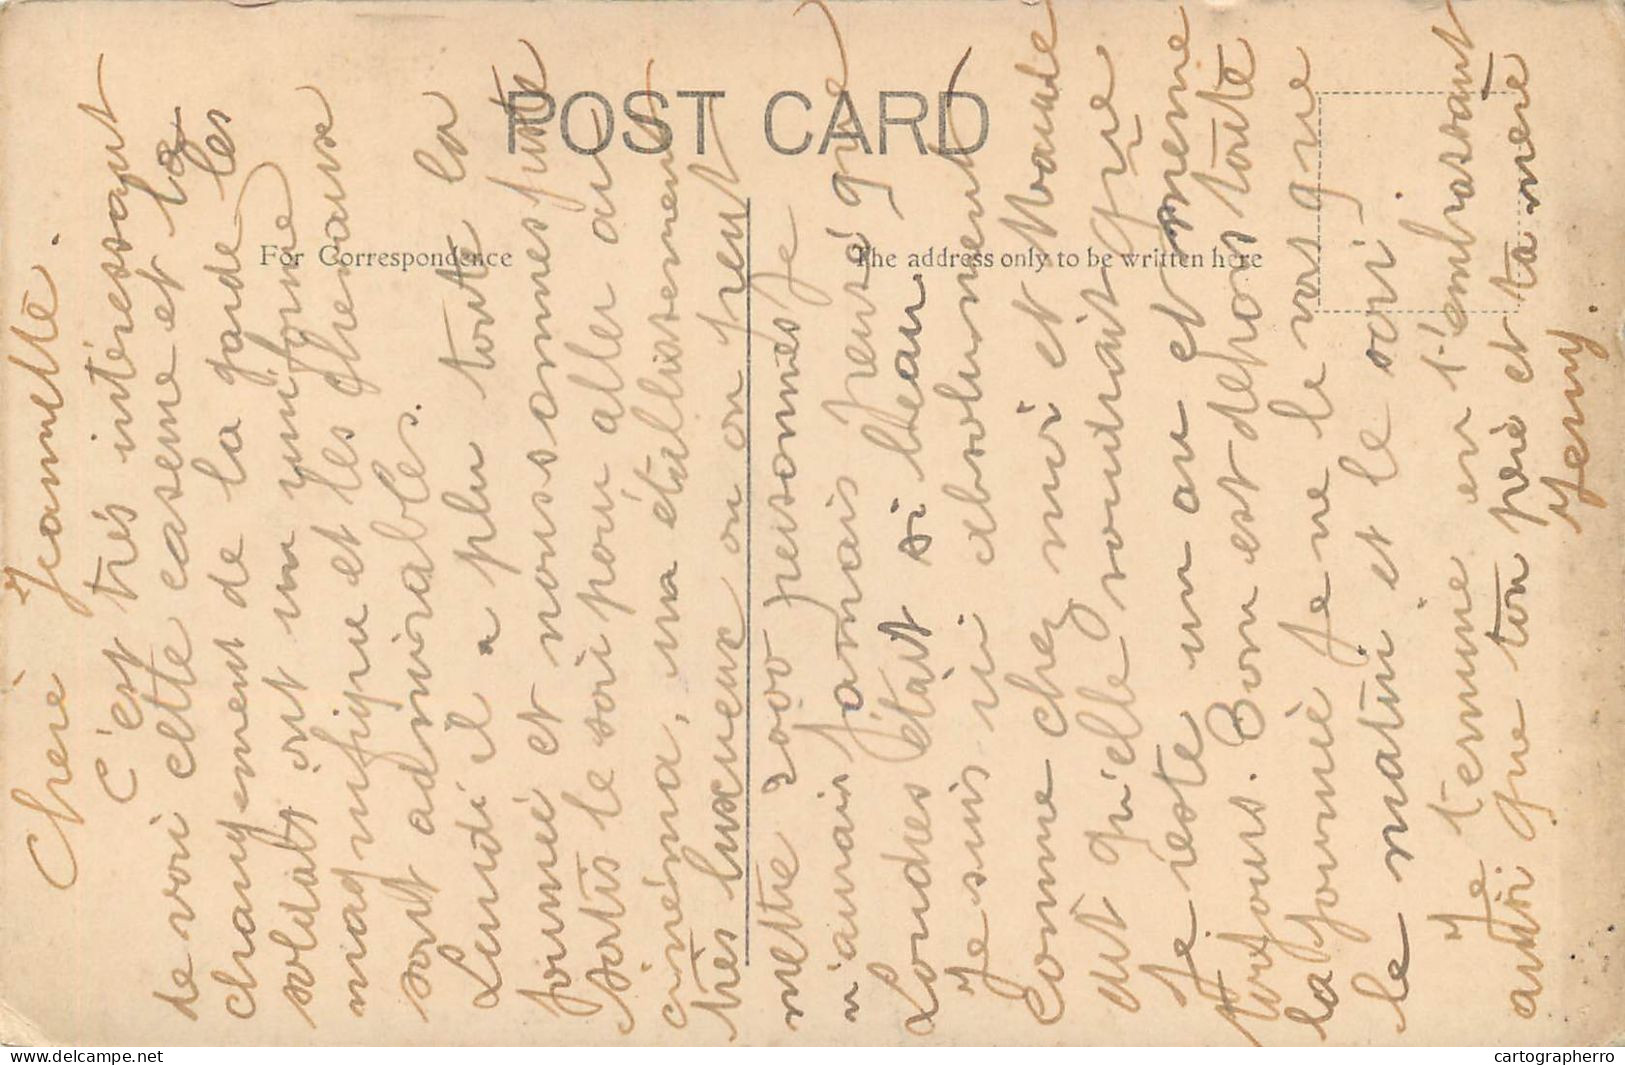 POST CARD
For Correspondence
The address only to be written here
Cherè Jeannette.
C'est très intéressant
de voir cette caserne et le
changement de la garde les
soldats ont un uniforme
magnifique et les chevaux
sont admirables.
Lundi il a plu toute la
journeé et nous sommes juste
sortis le soir pour aller au
cinéma, un établissement
très luxueux ou on peut
mettre 2000 personnes Je
n'aurais jamais pensé que
Londres était si beau.
Je suis ici absolument
comme chez moi et Maude
dit qu'elle voudrait que
Je reste un an et meme
toujours. Bon est dehors toute
la journeè Je ne le vois que
le matin et le soir.
Je termine en t'embrassant
ainsi que ton père et ta mère
Jeny.
cartographerro
www.delcampe.net